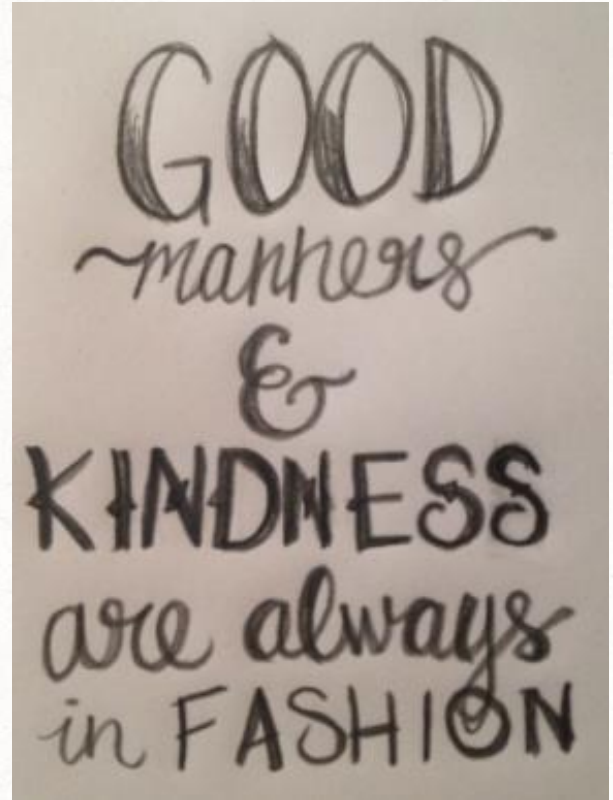 GOOD
manners
&
KINDNESS
are always
in FASHION